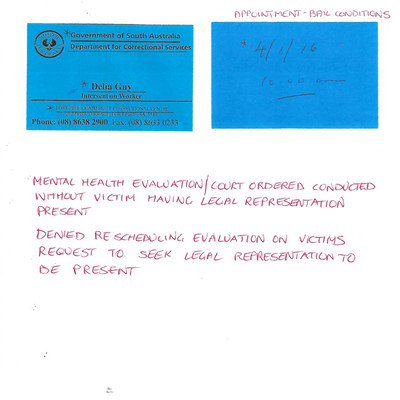 APPOINTMENT - BAIL CONDITIONS
* Government of South Australia
Department for Correctional Services
* Delia Guy
Intervention Worker
Phone: (08) 8638 2900 Fax: (08) 8633 0233
* 4/1/16
MENTAL HEALTH EVALUATION/COURT ORDERED CONDUCTED
WITHOUT VICTIM HAVING LEGAL REPRESENTATION
PRESENT
DENIED RESCHEDULING EVALUATION ON VICTIMS
REQUEST TO SEEK LEGAL REPRESENTATION TO
BE PRESENT